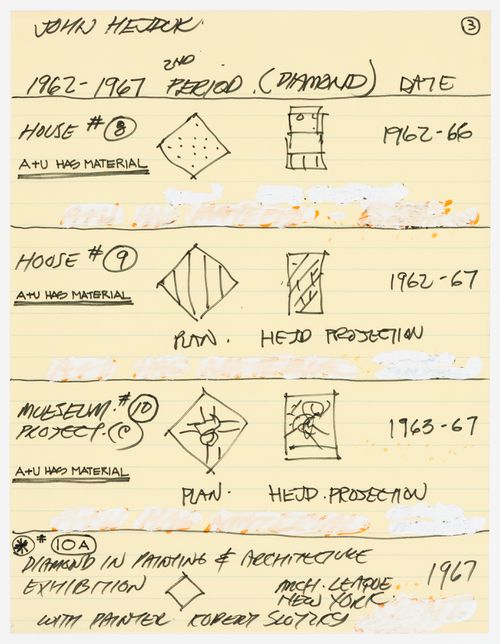 JOHN HEJDUK.
3
1962-1967 2ND PERIOD. (DIAMOND) DATE
HOUSE # 8 1962-66
A+U HAS MATERIAL
HOUSE # 9 1962-67
A+U HAS MATERIAL
PLAN. HEJD PROJECTION
MUESEUM. # 10
PROJECT. C 1963-67
A+U HAS MATERIAL
PLAN. HEJD. PROJECTION
* # 10A
DIAMOND IN PAINTING & ARCHITECTURE
EXHIBITION ARCH. LEAGUE 1967
NEW YORK.
WITH PAINTER ROBERT SLUTZKY